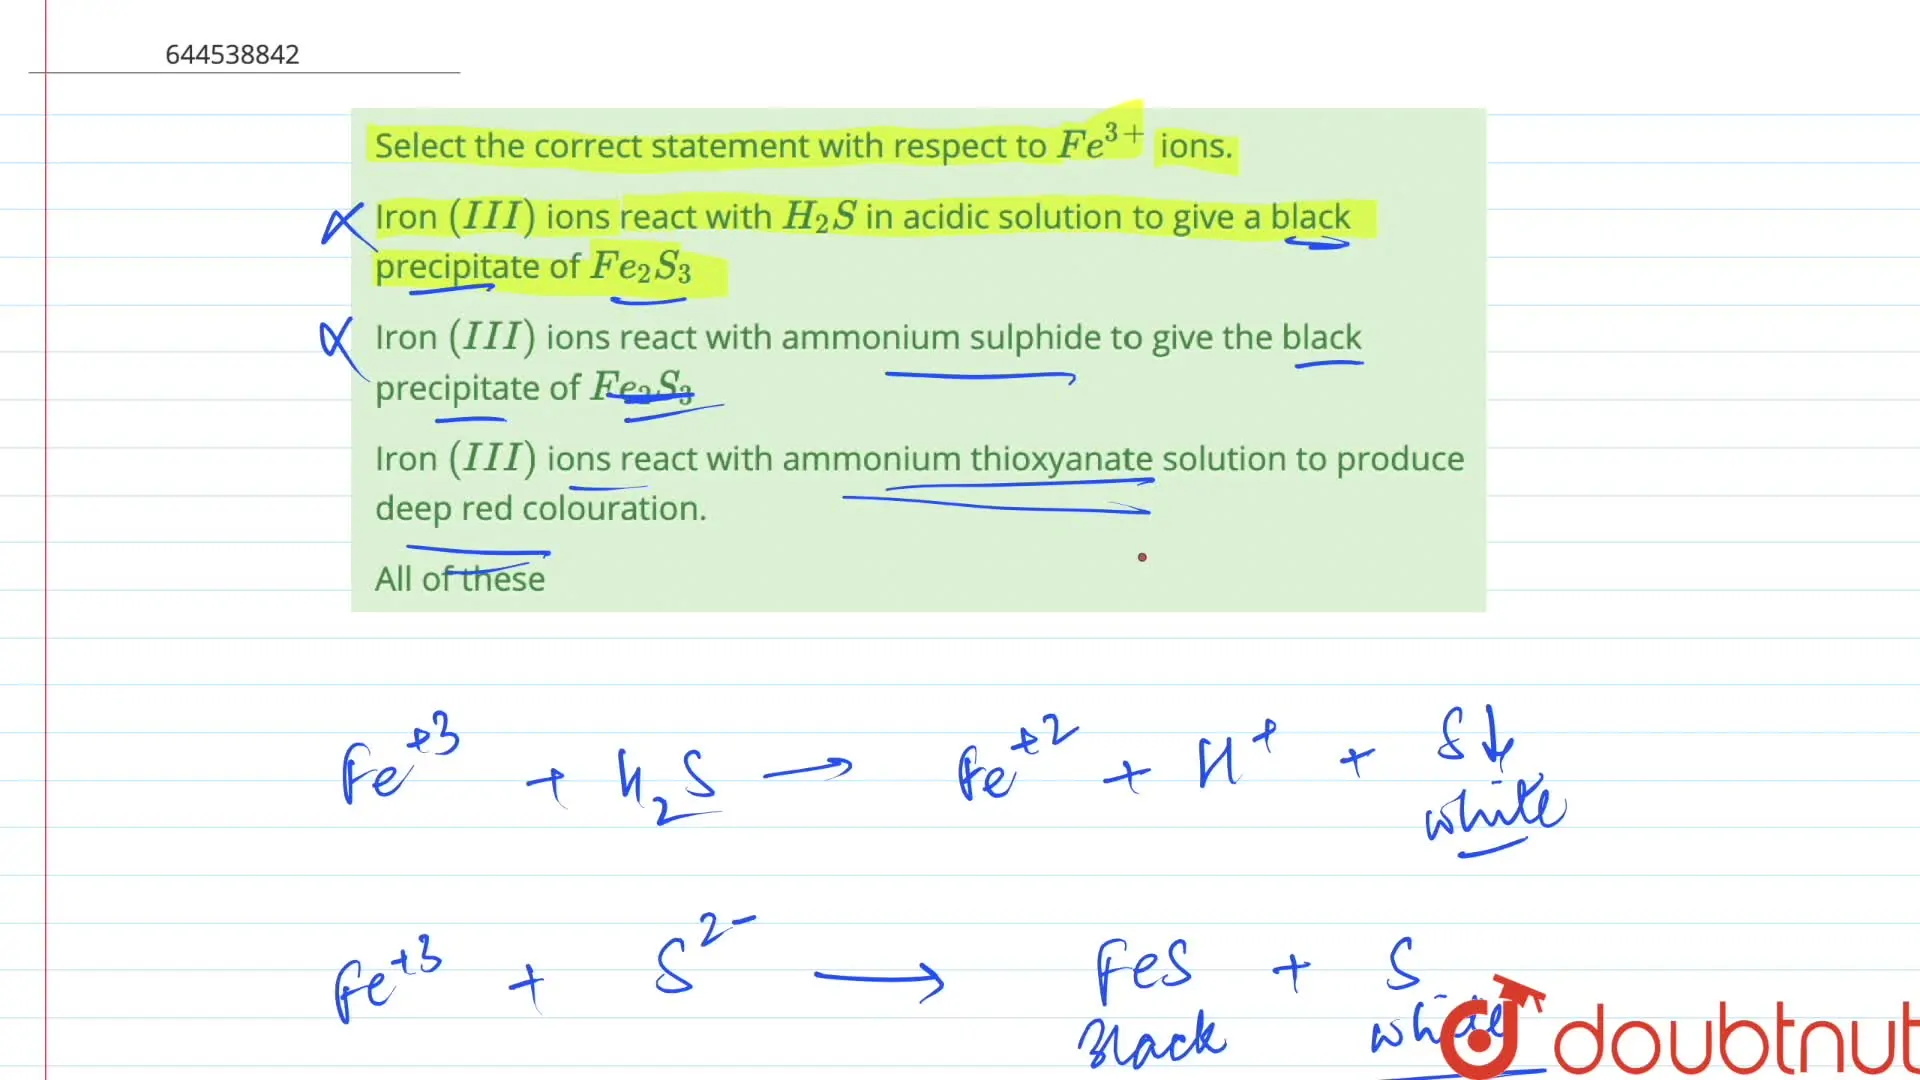 644538842
Select the correct statement with respect to Fe³⁺ ions.
Iron (III) ions react with H₂S in acidic solution to give a black
precipitate of Fe₂S₃
Iron (III) ions react with ammonium sulphide to give the black
precipitate of Fe₂S₃
Iron (III) ions react with ammonium thioxyanate solution to produce
deep red colouration.
All of these
Fe⁺³ + H₂S → Fe⁺² + H⁺ + S↓
white
Fe⁺³ + S²⁻ → FeS + S
Black white
doubtnut